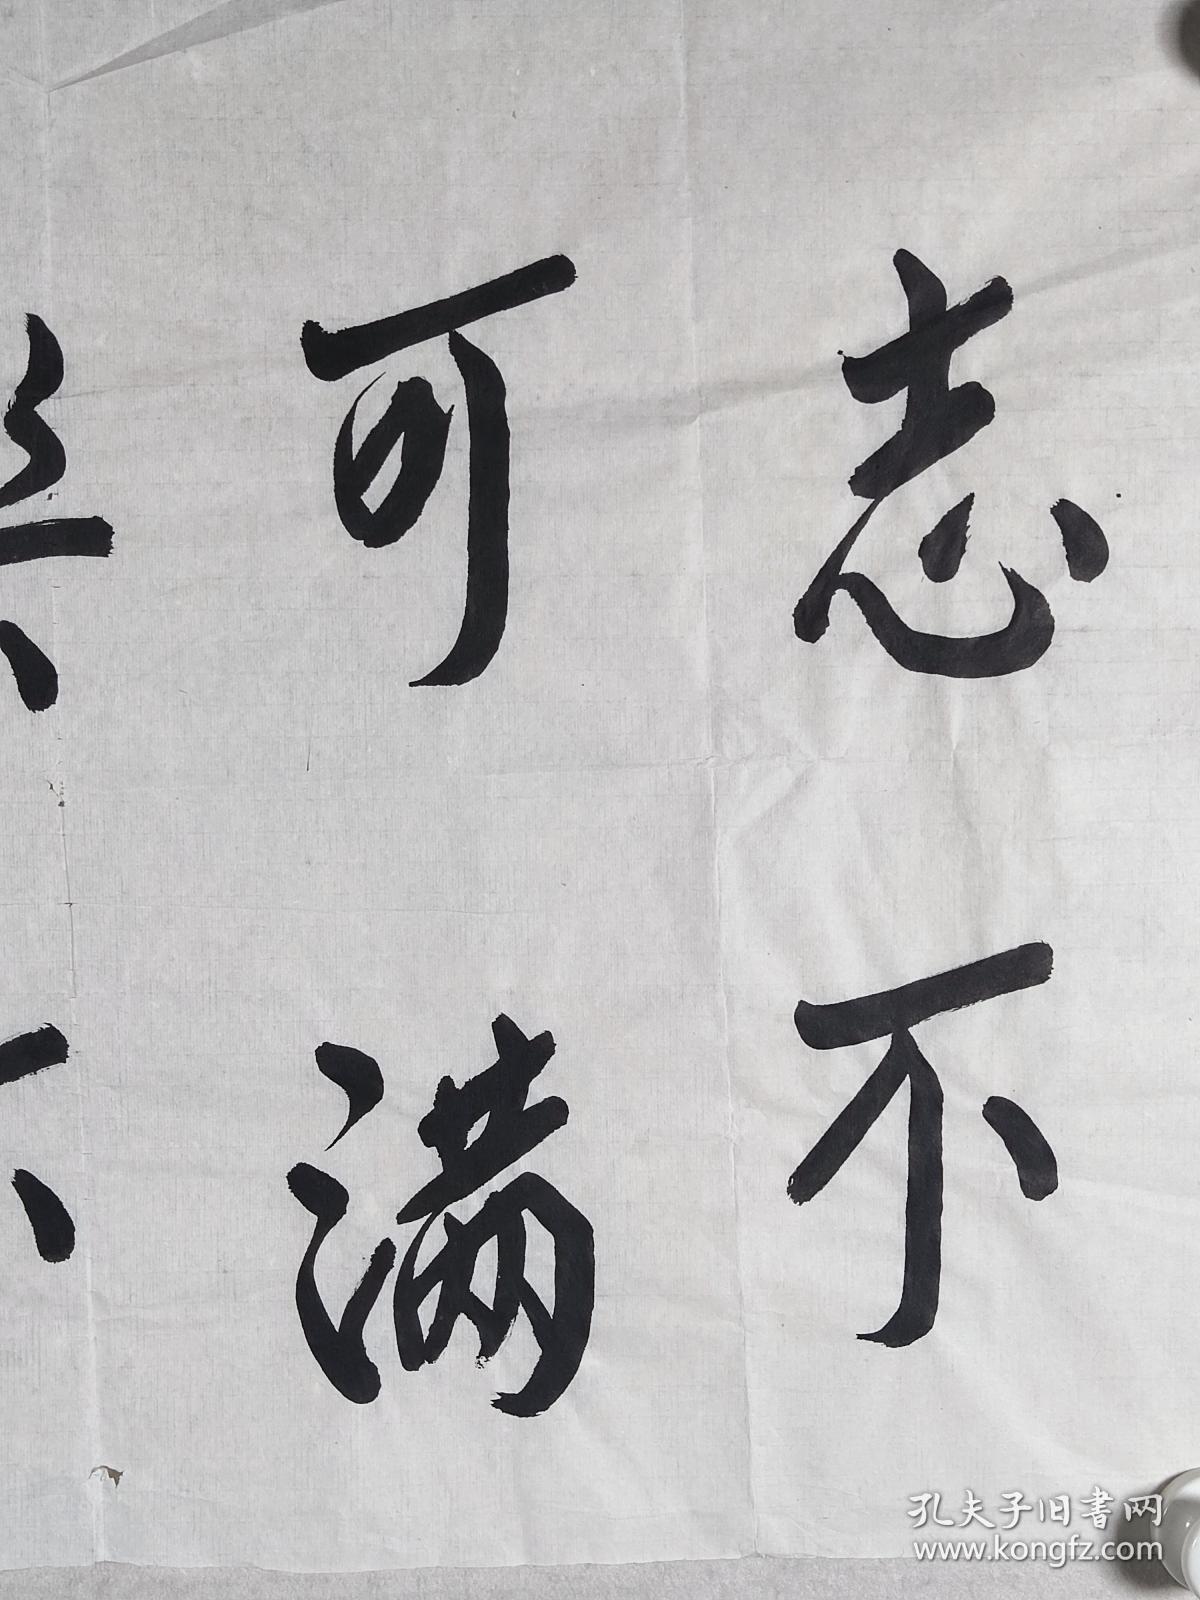 志不
可满
不
孔夫子旧書网
www.kongfz.com